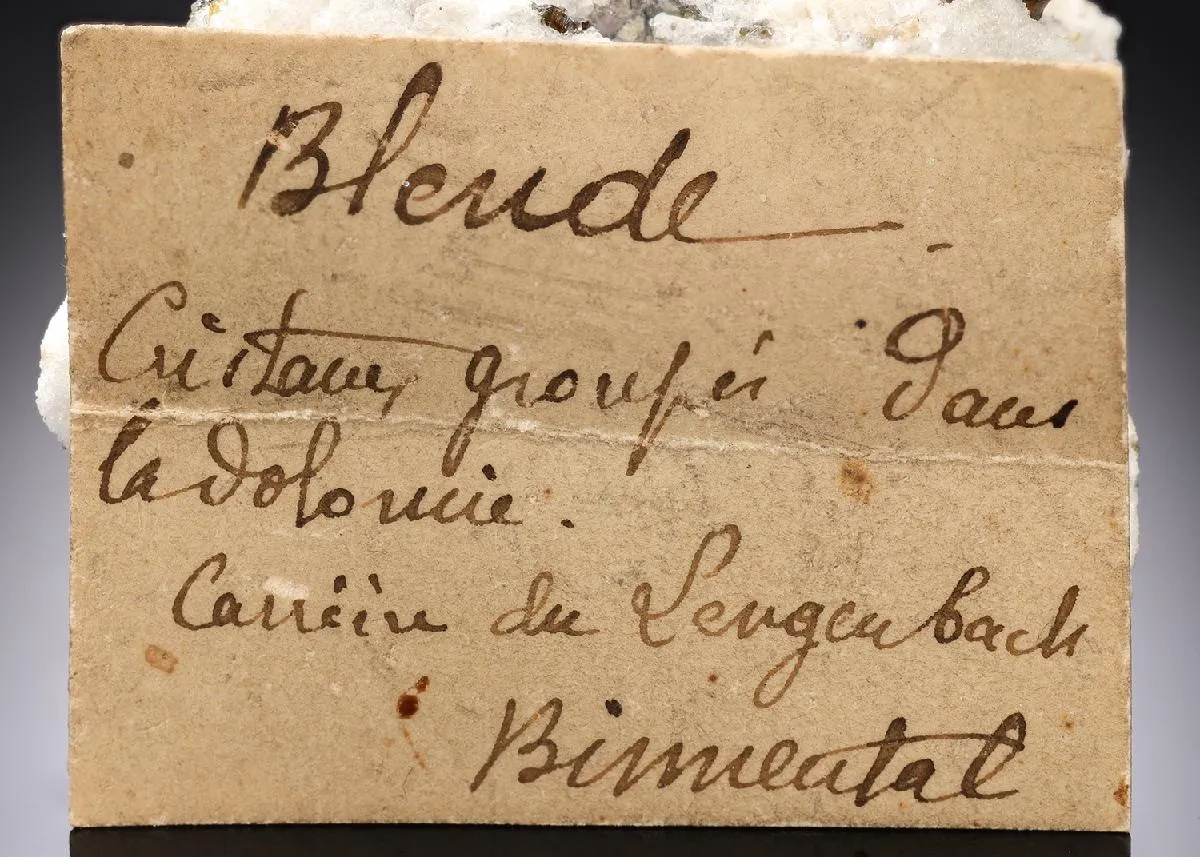 Blende.
Cristaux groupés dans
la dolomie.
Carrière du Lengenbach
Binnental